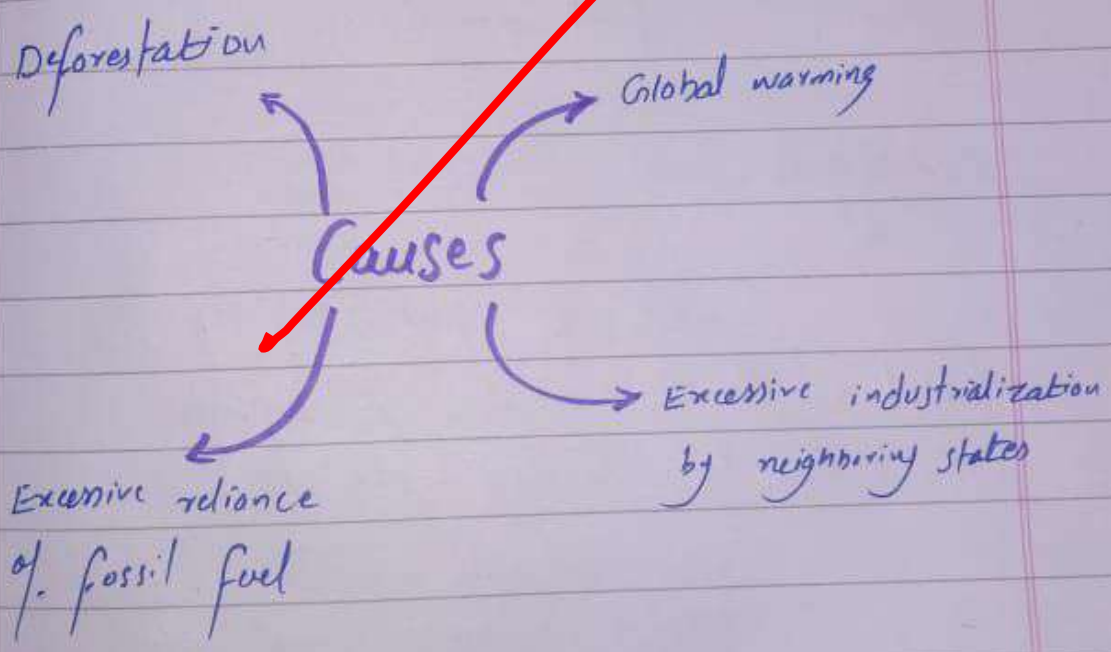 Deforestation
Global warming
Causes
Excessive industrialization
by neighboring states
Excessive reliance
of fossil fuel